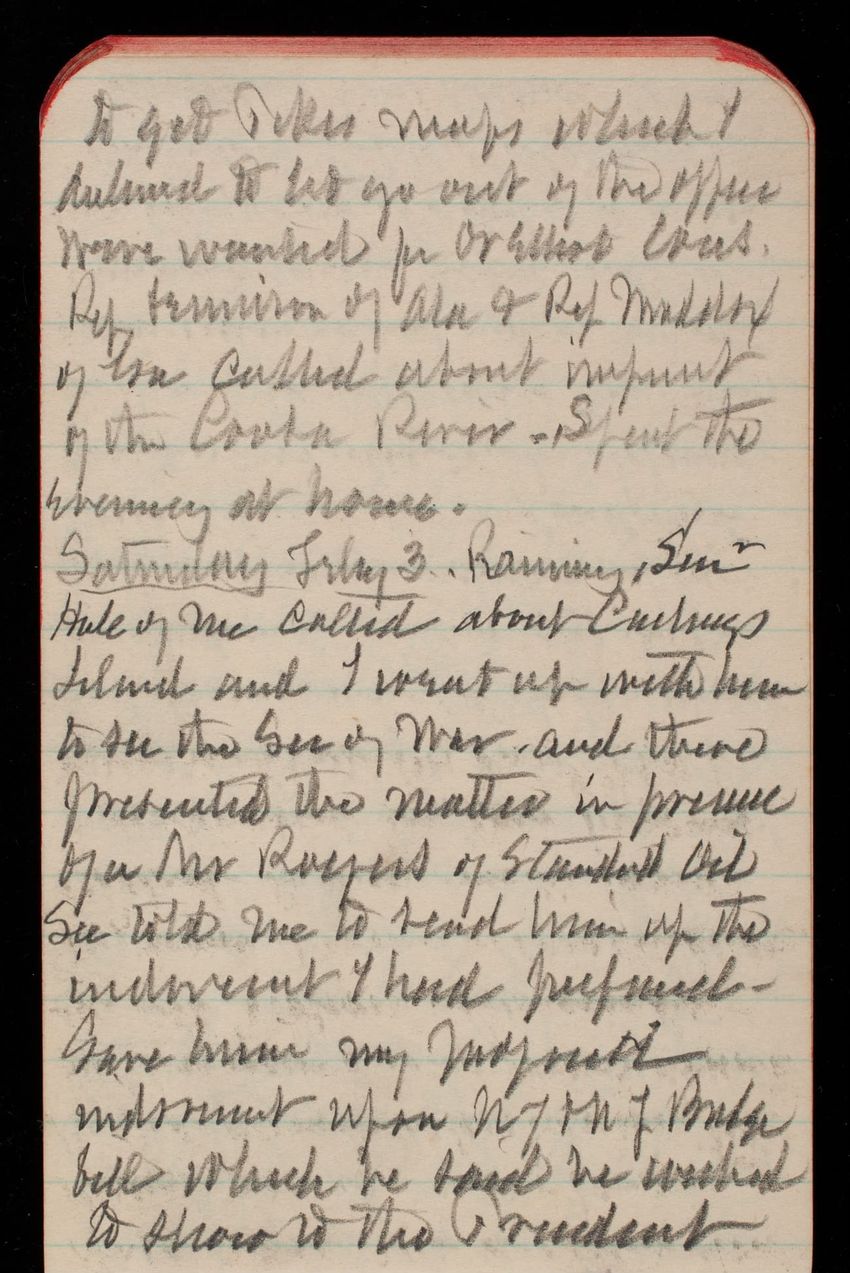 to get Pikes maps which I
declined to let go out of the office
were wanted for Dr Elliot Coues.
Rep. Denison of Ala & Rep Maddox
of Ga called about improvt
of the Coosa River - Spent the
evening at home.
Saturday Feby 3. Raining, Senr
Hale of Me called about Cushings
Island and I went up with him
to see the Sec of War. and there
presented the matter in presence
of a Mr Rogers of Standard Oil
Sec told me to send him up the
indorsement I had prepared -
Gave him my
indorsment upon NY & NJ Bridge
bill which he said he wished
to show to the President